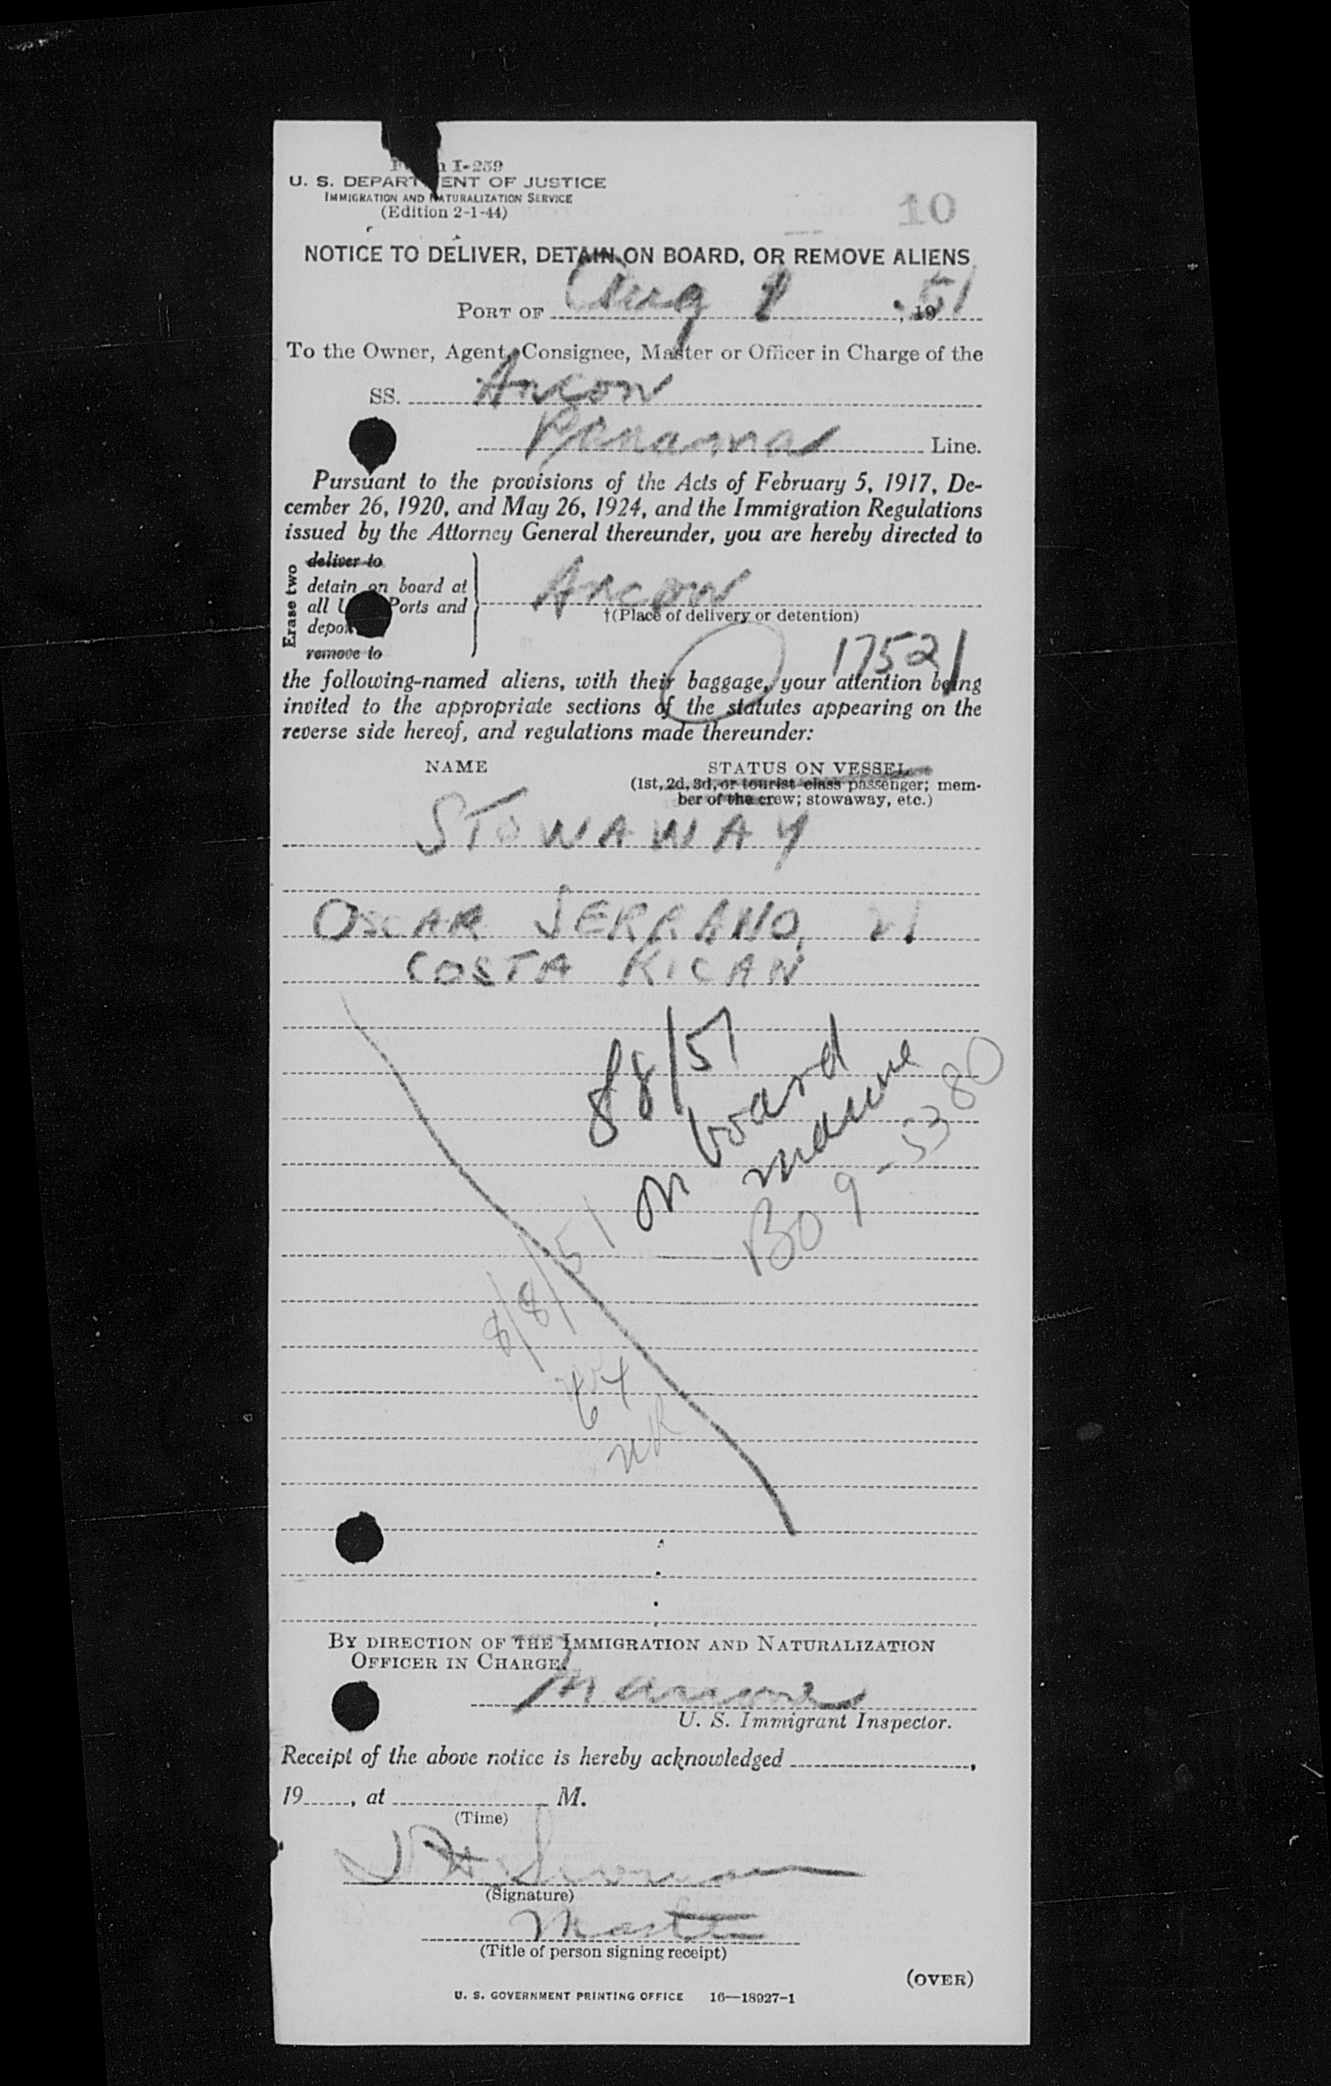 Form I-259
U. S. DEPARTMENT OF JUSTICE
IMMIGRATION AND NATURALIZATION SERVICE
(Edition 2-1-44)
10
NOTICE TO DELIVER, DETAIN ON BOARD, OR REMOVE ALIENS
PORT OF Aug 8, 1951
To the Owner, Agent, Consignee, Master or Officer in Charge of the
SS. Ancon
Panama Line.
Pursuant to the provisions of the Acts of February 5, 1917, De-
cember 26, 1920, and May 26, 1924, and the Immigration Regulations
issued by the Attorney General thereunder, you are hereby directed to
Erase two
deliver to
detain on board at
all U. S. Ports and
deport
remove to
Ancon
†(Place of delivery or detention)
17521
the following-named aliens, with their baggage, your attention being
invited to the appropriate sections of the statutes appearing on the
reverse side hereof, and regulations made thereunder:
NAME STATUS ON VESSEL
(1st, 2d, 3d, or tourist class passenger; mem-
ber of the crew; stowaway, etc.)
STOWAWAY
OSCAR SERRANO, 21
COSTA RICAN
8/8/51
on board
BO 9-5380
8/8/51
BY DIRECTION OF THE IMMIGRATION AND NATURALIZATION
OFFICER IN CHARGE.
U. S. Immigrant Inspector.
Receipt of the above notice is hereby acknowledged ,
19 , at M.
(Time)
(Signature)
Master
(Title of person signing receipt)
(OVER)
U. S. GOVERNMENT PRINTING OFFICE 16—18927-1